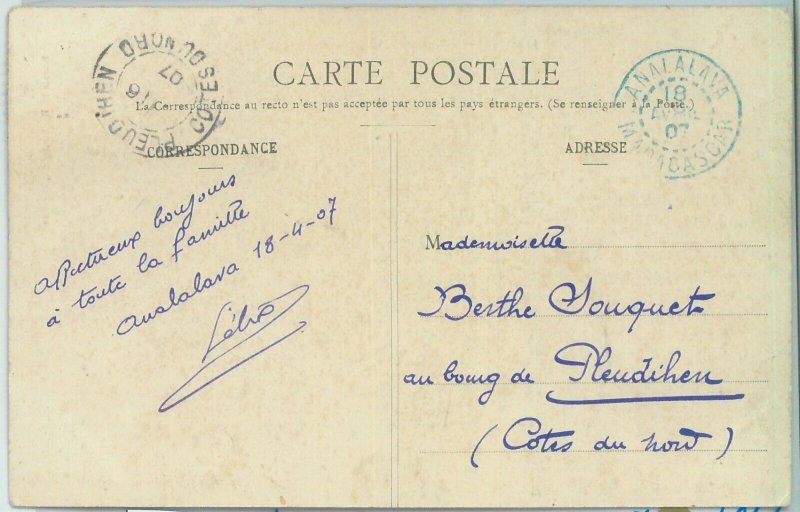 CARTE POSTALE
La Correspondance au recto n'est pas acceptée par tous les pays étrangers. (Se renseigner à la Poste.)
PLEUDIHEN
COTES DU NORD
16
07
ANALALAVA
18
AVRIL
07
MADAGASCAR
CORRESPONDANCE
affectueux bonjours
à toute la famille
Analalava 18-4-07
ADRESSE
Mademoiselle
Berthe Souquet
au bourg de Pleudihen
(Côtes du nord)